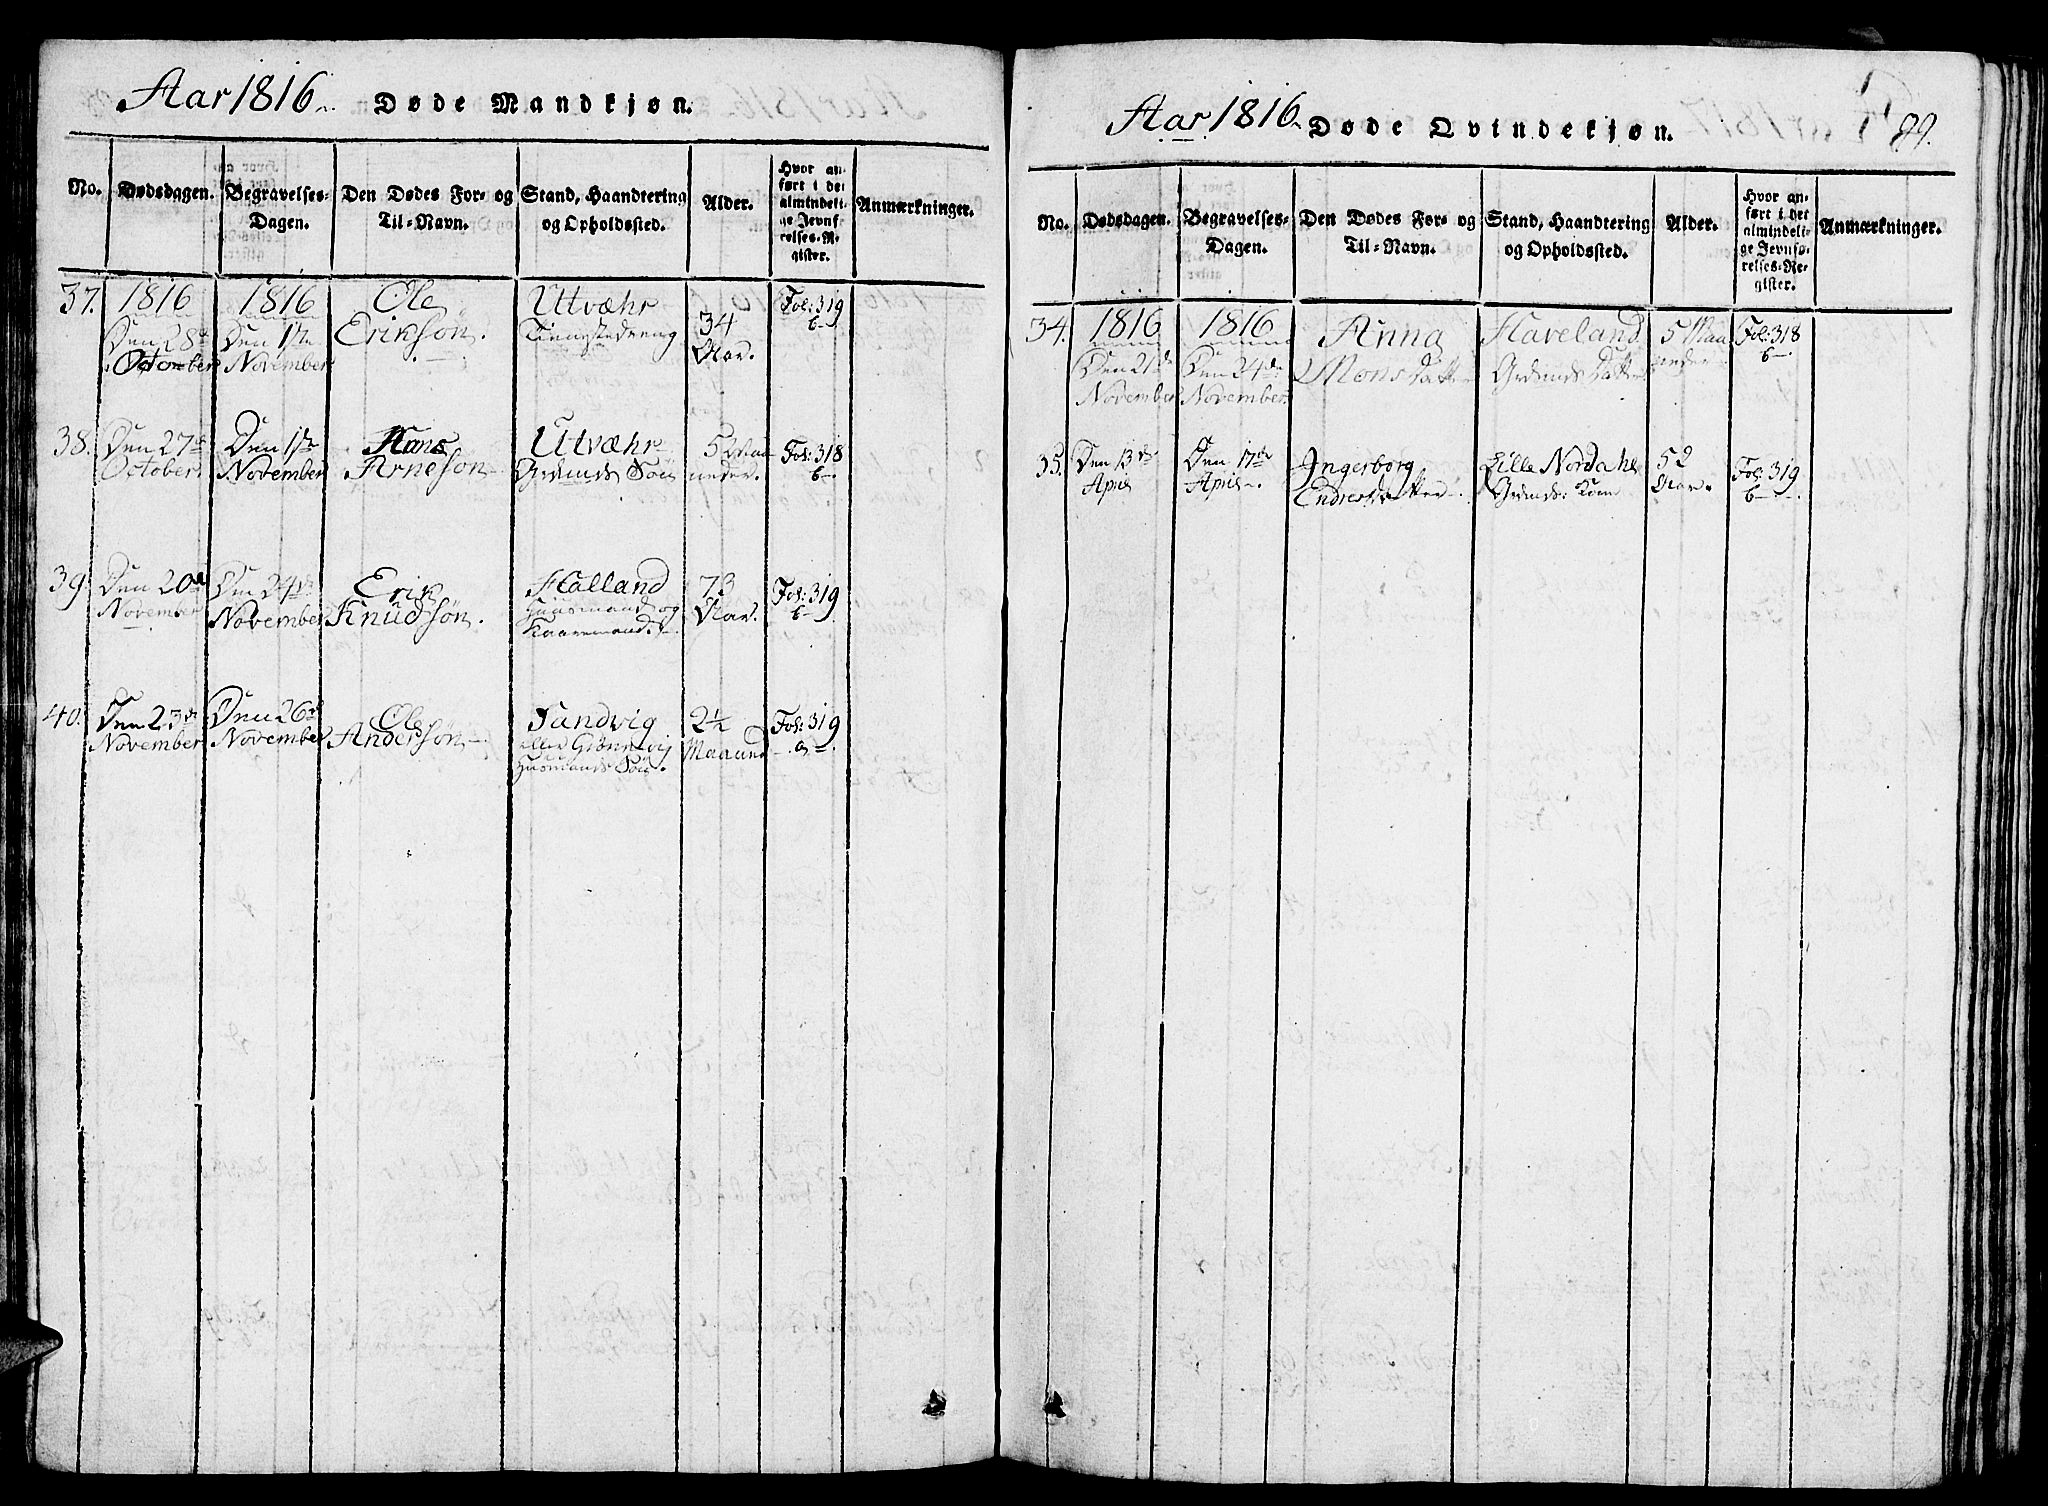 Aar 1816. Døde Mandkjøn.
No. Dødsdagen. Begravelses-Dagen. Den Dødes For- og Til-Navn. Stand, Haandtering og Opholdssted. Alder. Hvor anført i det almindelige Jevnførelses-Register. Anmærkninger.
37. 1816 1816 Ole Utvæhr 34 Fol: 319
Den 28de Den 1ste Eriksøn. Aar. b
October November
38. Den 27de Den 1ste Hans Utvæhr 5 Maa Fol: 318
October. November Arnesøn Grdmds Søn neder. b
39. Den 20de Den 24de Erik Halland 73 Fol: 319
November November Knudsøn. Huusmand og Aar. b
40. Den 23de Den 26de Ole Sandvig 2½ Fol: 319
November November Andersøn Maaned a
Huusmands Søn.
Aar 1816 Døde Qvindekjøn. 89.
No. Dødsdagen. Begravelses-Dagen. Den Dødes For- og Til-Navn. Stand, Haandtering og Opholdssted. Alder. Hvor anført i det almindelige Jevnførelses-Register. Anmærkninger.
34. 1816 1816 Anna Haveland 5 Maa Fol: 318
Den 21de Den 24de Mons Datter Grdmds Datter neder b
November November.
35. Den 13de Den 17de Ingerborg Lille Nordahl 52 Fol: 319
April April Endresdatter Grdmds: Kone Aar. b